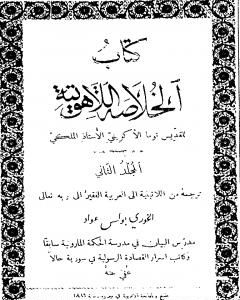 كتاب
الخلاصة اللاهوتية
للقديس توما الاكويني الاستاذ الملكي
المجلد الثاني
ترجمة من اللاتينية الى العربية الفقير الى ربه تعالى
الخوري بولس عواد
مدرس البيان في مدرسة الحكمة المارونية سابقا
وكاتب اسرار القصادة الرسولية في سورية حالا
عفي عنه